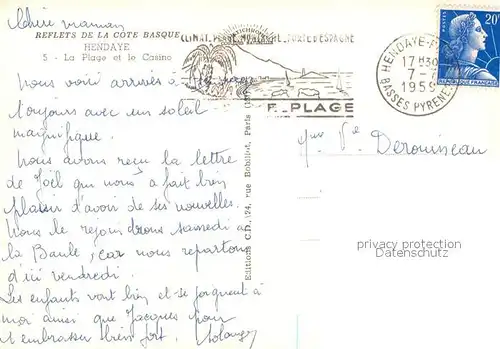 Chère maman
REFLETS DE LA CÔTE BASQUE
HENDAYE
5 - La Plage et le Casino
Nous voici arrivés à
toujours avec un soleil
magnifique.
Nous avons reçu la lettre
de Joël qui nous a fait bien
plaisir d'avoir de ses nouvelles.
Nous le rejoindrons samedi à
la Baule, car nous repartons
d'ici vendredi.
Les enfants vont bien et se joignent à
moi ainsi que Jacques pour
t'embrasser bien fort. Solange
CLIMAT. PLAGE. MONTAGNE. PORTE D'ESPAGNE
PLAGE
Editions C.D., 124, rue Bobillot, Paris
HENDAYE-P
17H30
1959
BASSES PYRENEES
POSTES
20F
REPUBLIQUE FRANÇAISE
Mme Vve Derouineau
privacy protection
Datenschutz